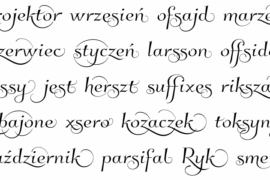 rojektor wrzesień ofsajd marze
czerwiec styczeń larsson offside
essy jest herszt suffixes riksza
bajone xsero kozaczek toksyn
aździernik parsifal Ryk sme